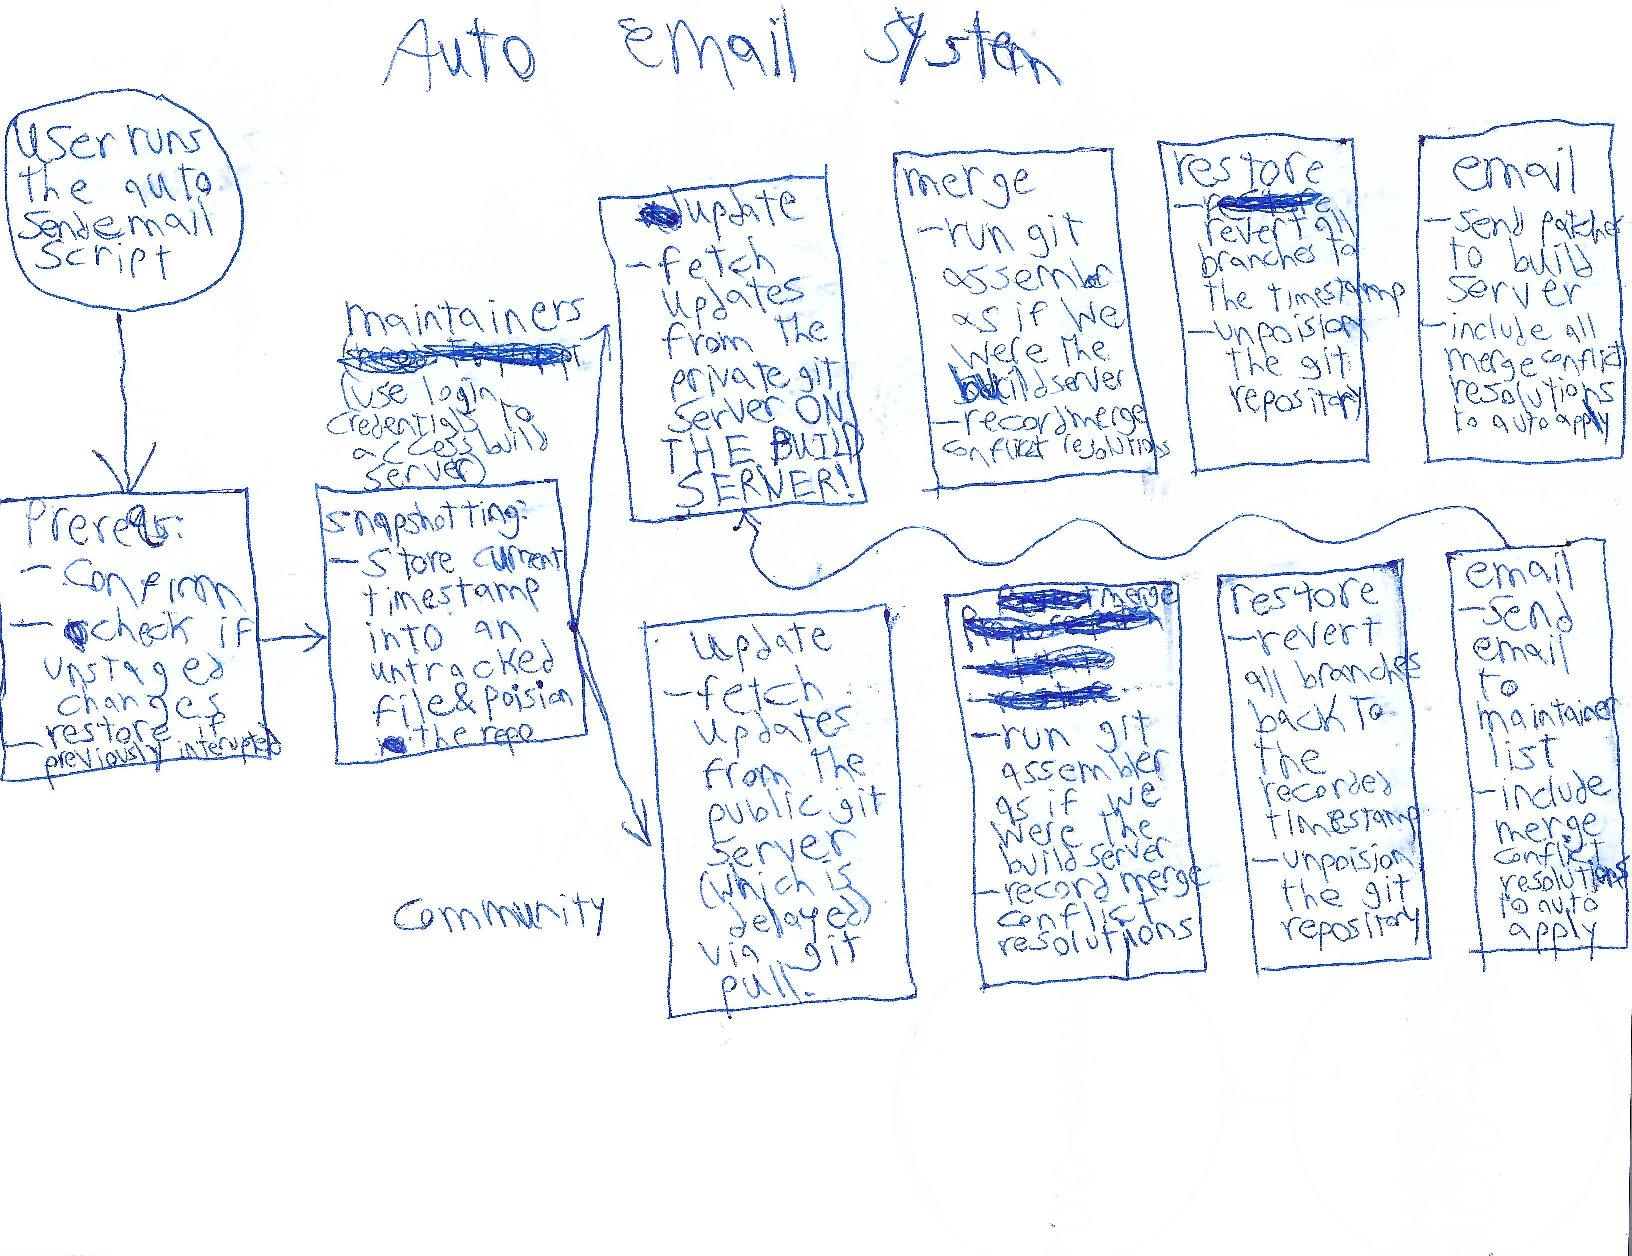 Auto email system
user runs
the auto
sendemail
script
Prereqs:
- confirm
- check if
unstaged
changes
- restore if
previously interupted
maintainers
(use login
credentials to
access build
server)
snapshotting:
- store current
timestamp
into an
untracked
file & poision
the repo
update
- fetch
updates
from the
private git
server ON
THE BUILD
SERVER!
merge
- run git
assembler
as if we
were the
buildserver
- record merge
conflict resolutions
restore
revert all
branches to
the timestamp
- unpoision
the git
repository
email
- send patches
to build
server
- include all
merge conflict
resolutions
to auto apply
community
update
- fetch
updates
from the
public git
server
(which is
delayed)
via git
pull.
merge
- run git
assembler
as if we
were the
build server
- record merge
conflict
resolutions
restore
- revert
all branches
back to
the
recorded
timestamp
- unpoision
the git
repository
email
- send
email
to
maintainer
list
- include
merge
conflict
resolutions
to auto
apply